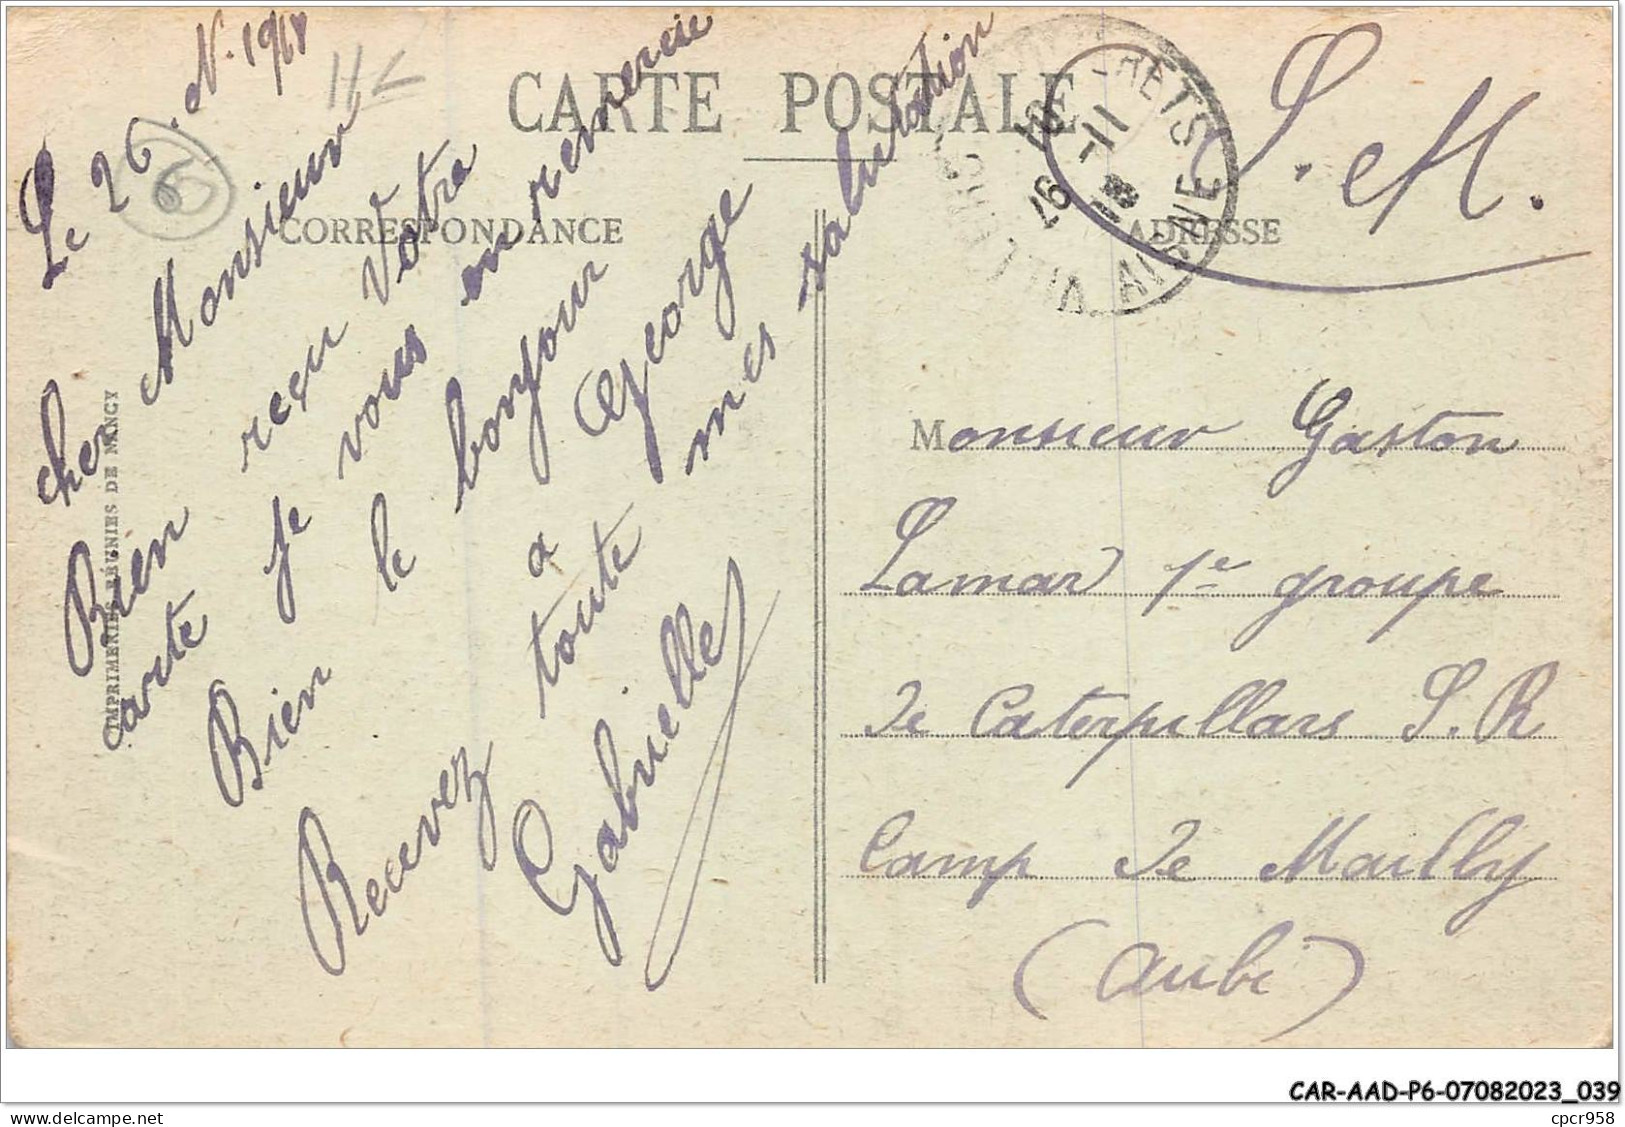 CARTE POSTALE
CORRESPONDANCE
ADRESSE
Le 26. N. 1918
cher Monsieur
Bien reçu Votre
carte je vous en remercie
Bien le bonjour
a George
Recevez toute mes salutation
Gabrielle
S. M.
VILLERS
RETS
AISNE
Monsieur Gaston
Lamar 1e groupe
de Caterpillars S. R
Camp de Mailly
(Aube)
IMPRIMERIES RÉUNIES DE NANCY
CAR-AAD-P6-07082023_039
www.delcampe.net
cpcr958